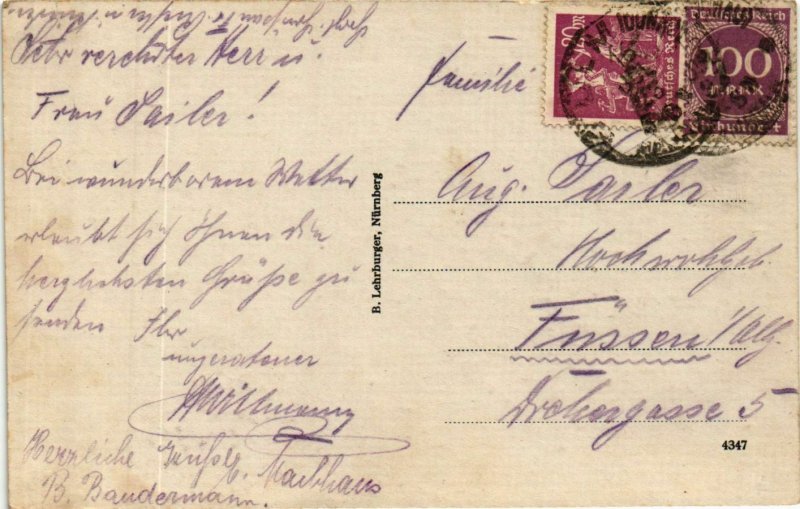 Sehr verehrter Herr u.
Frau Sailer!
Bei wunderbarem Wetter
erlaubt sich Ihnen die
herzlichsten Grüße zu
senden Ihr
ungeratener
Herzliche Grüße
B. Baudermann.
B. Lehrburger, Nürnberg
Familie
Aug. Sailer
Hochwohlgeb.
Füssen / Allg.
Drehergasse 5
4347
Deutsches Reich
Deutsches Reich
100
MARK
Einhundert